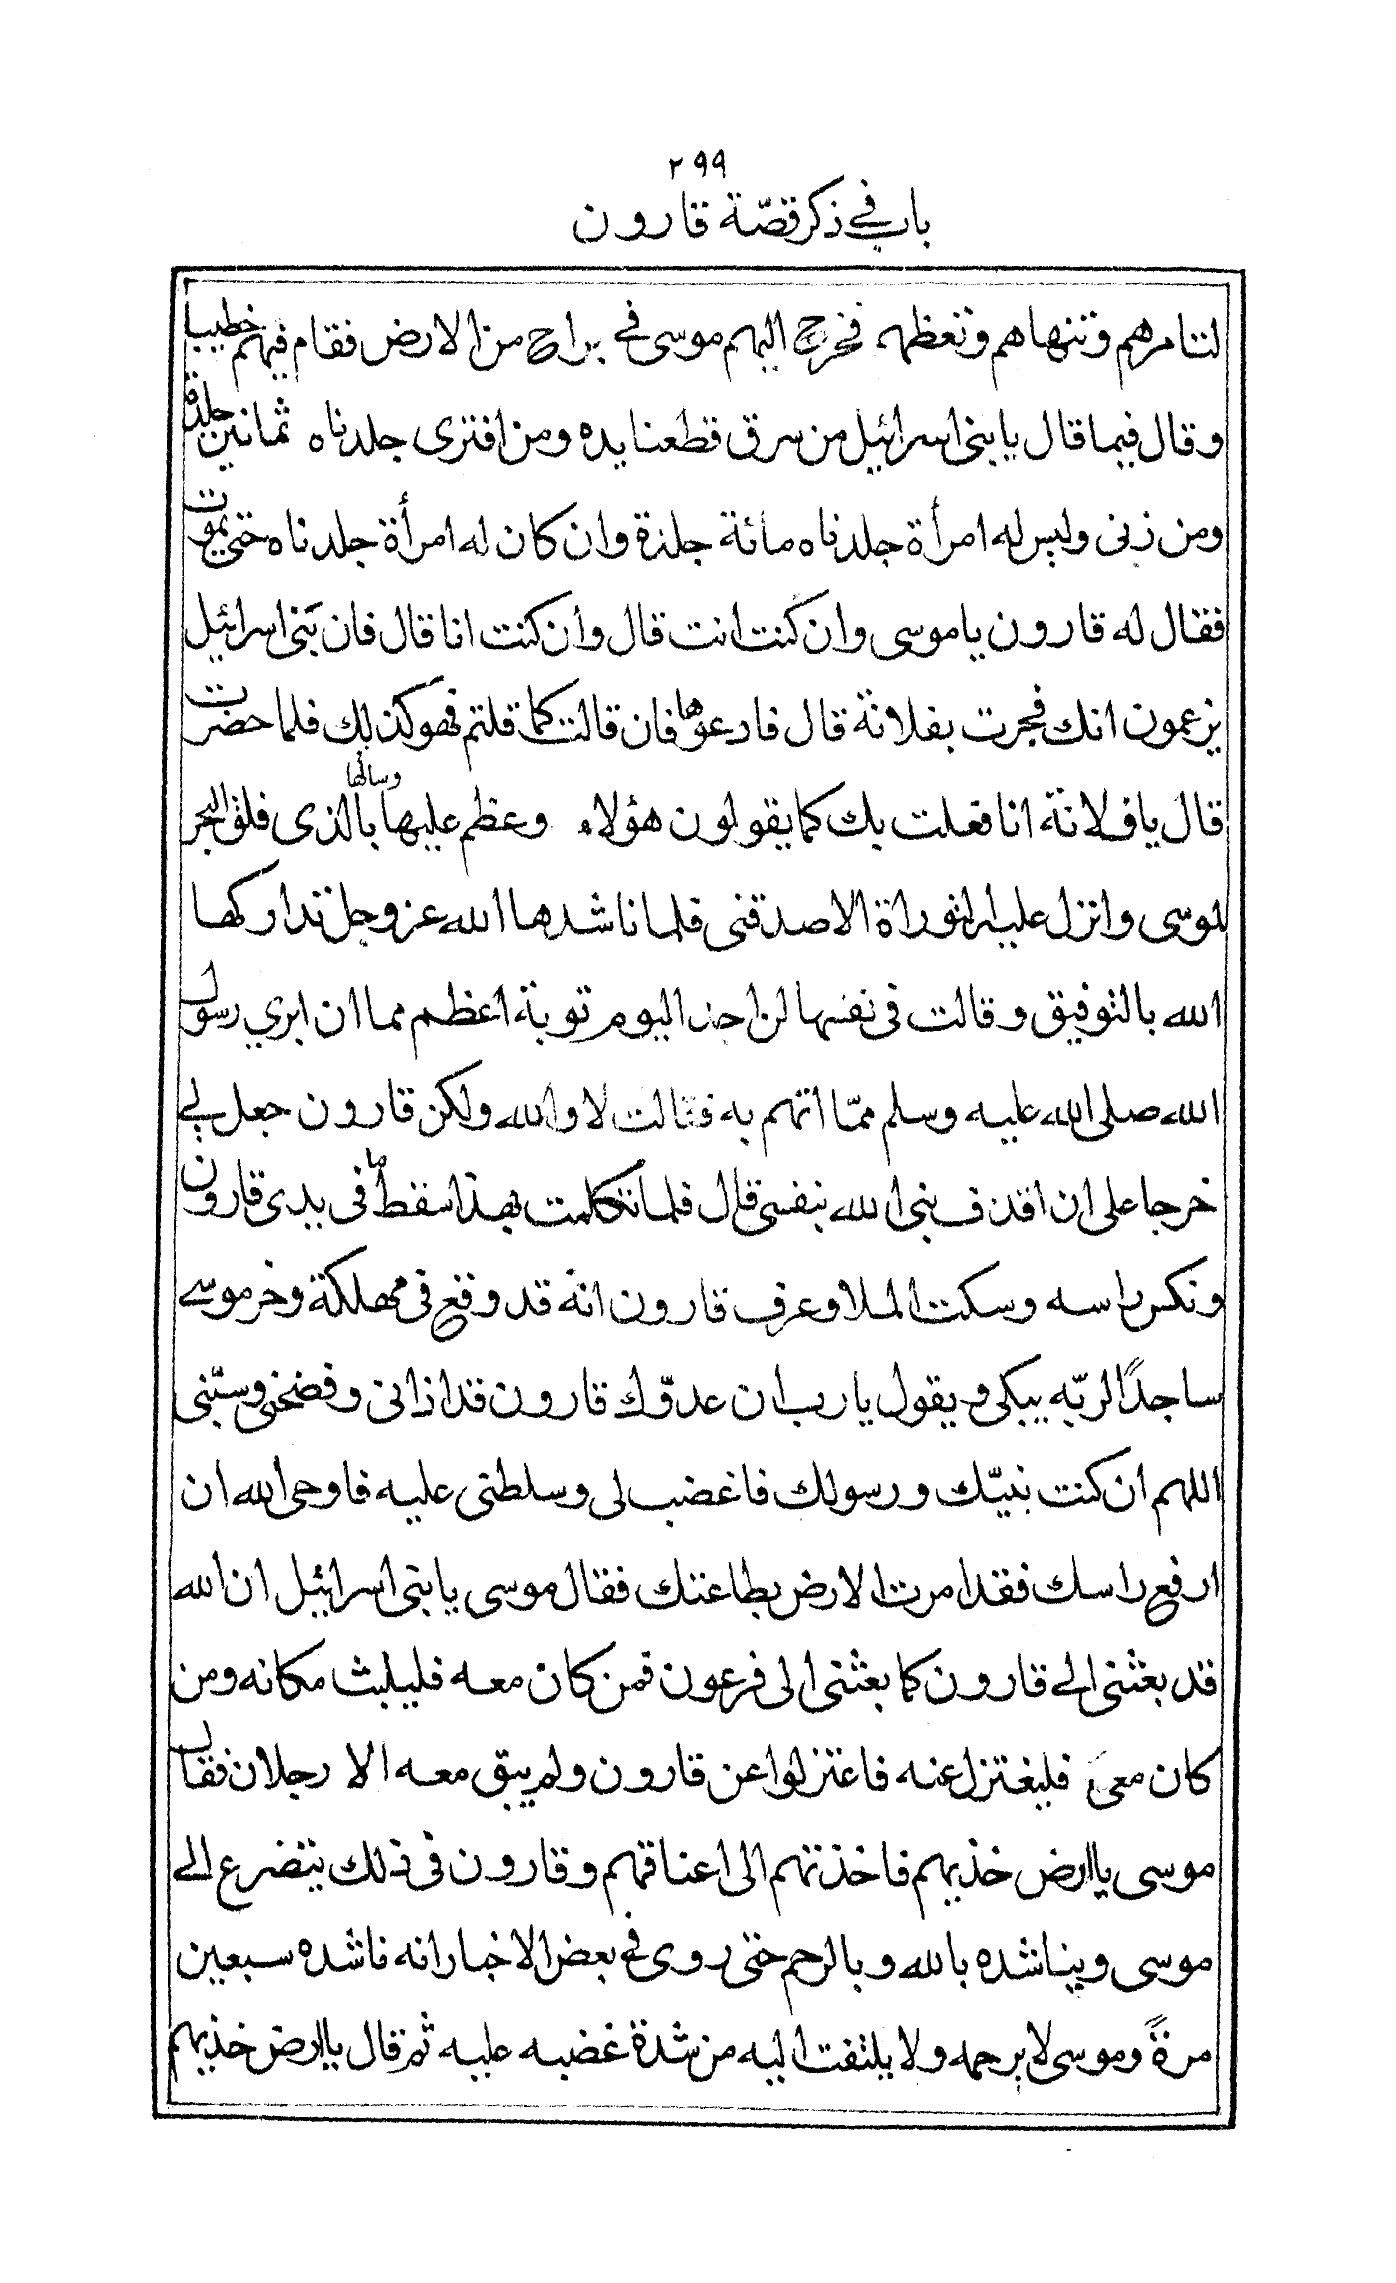 ٢٩٩
باب في ذكر قصّة قارون
لتنامرهم وتنهاهم وتعظهم فخرج اليهم موسى في براح من الارض فقام فيهم خطيبا
وقال فيما قال يا بنى اسرائيل من سرق قطعنا يده ومن افترى جلدناه ثمانين جلدة
ومن زنى وليس له امرأة جلدناه مائة جلدة وان كان له امرأة جلدناه حتى يموت
فقال له قارون يا موسى وان كنت انت قال وان كنت انا قال فان بنى اسرائيل
يزعمون انك فجرت بفلانة قال فادعوها فان قالت كما قلتم فهو كذلك فلما حضرت
قال يا فلانة انا فعلت بك كما يقولون هؤلاء وعظم عليها وسالها بالذى فلق البحر
لموسى وانزل عليه التوراة الا صدقنى فلما ناشدها الله عز وجل تداركها
الله بالتوفيق وقالت فى نفسها لن اجد اليوم توبة اعظم مما ان ابري رسول
الله صلى الله عليه وسلم ممّا اتهم به فقالت لا والله ولكن قارون جعل لي
خرجا على ان اقذف بنى الله بنفسى قال فلما تكلمت بهذا سقط ما فى يدى قارون
ونكس راسه وسكت الملا وعرف قارون انه قد وقع فى مهلكة وخر موسى
ساجداً لربّه يبكى ويقول يا رب ان عدوّك قارون قد اذانى وفضحنى وسبّنى
اللهم ان كنت بنيّك ورسولك فاغضب لى وسلطنى عليه فاوحى الله ان
ارفع راسك فقد امرت الارض بطاعتك فقال موسى يا بنى اسرائيل ان الله
قد بعثنى الى قارون كما بعثنى الى فرعون فمن كان معه فليلبث مكانه ومن
كان معى فليغتزل عنه فاعتزلوا عن قارون ولم يبق معه الا رجلان فقال
موسى يا ارض خذيهم فاخذتهم الى اعناقهم وقارون فى ذلك يتضرع الى
موسى ويناشده بالله وبالرحم حتى روى فى بعض الاخبار انه ناشده سبعين
مرةً وموسى لا يرحمه ولا يلتفت اليه من شدة غضبه عليه ثم قال يا ارض خذيهم